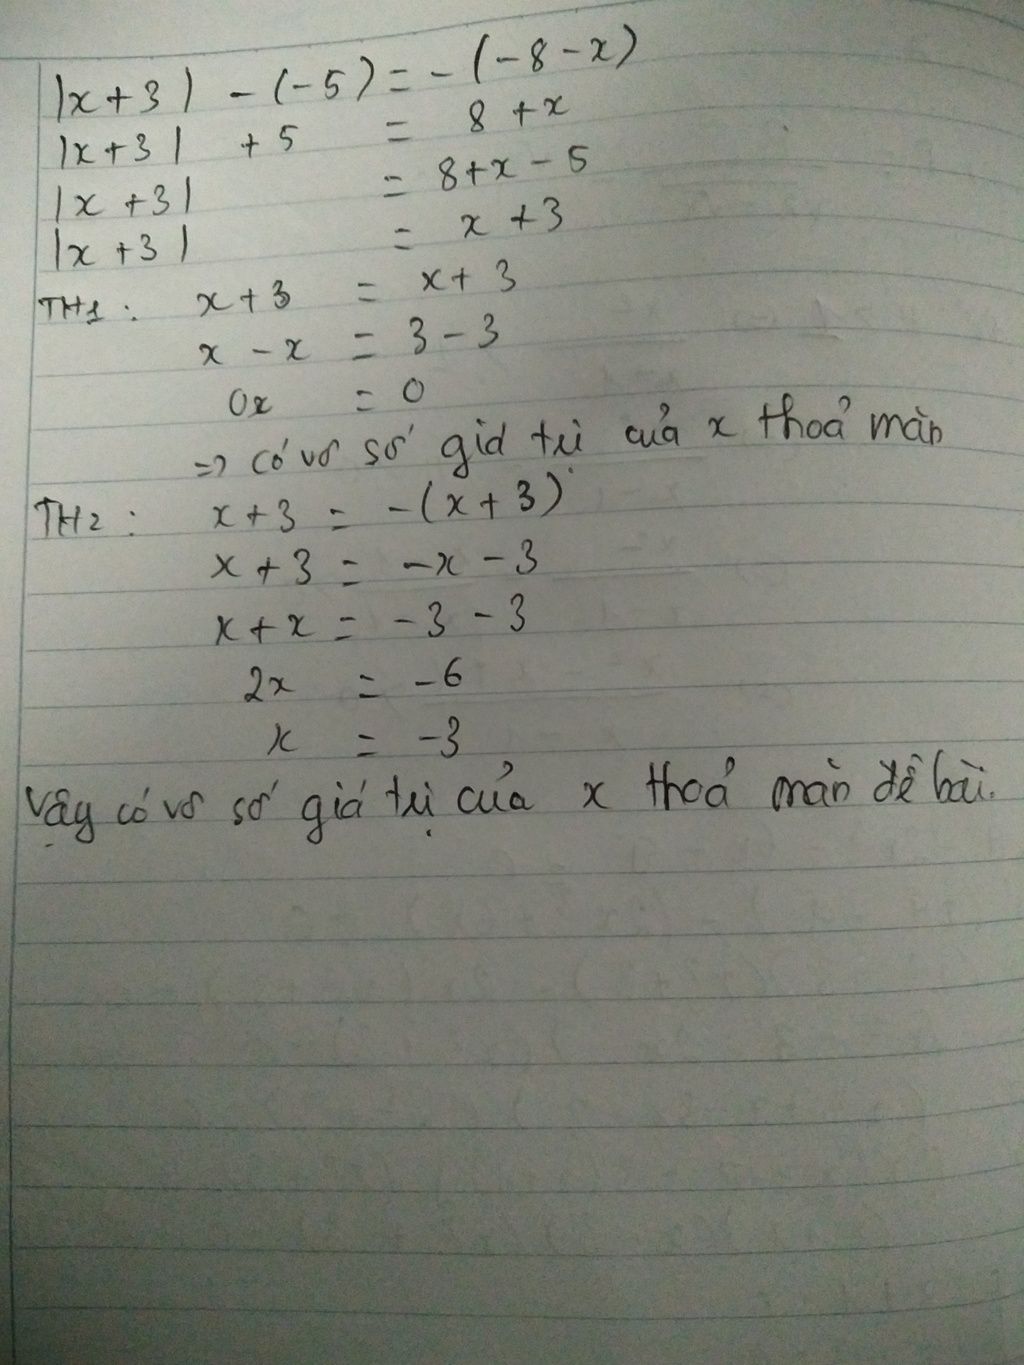 |x+3| - (-5) = - (-8-x)
|x+3| + 5 = 8 + x
|x+3| = 8+x-5
|x+3| = x+3
TH1: x+3 = x+3
x - x = 3-3
0x = 0
=> có vô số giá trị của x thoả mãn
TH2: x+3 = -(x+3)
x+3 = -x-3
x+x = -3-3
2x = -6
x = -3
Vậy có vô số giá trị của x thoả mãn đề bài.